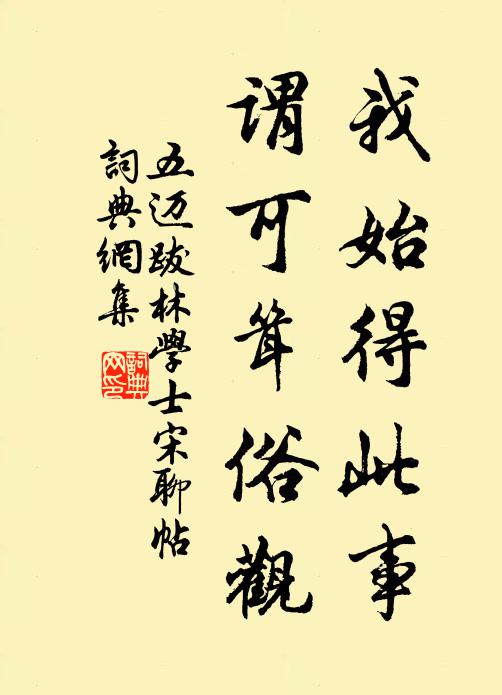 我始得此事
謂可聳俗觀
五迈跋林學士宋聊帖
詞典網集
詞典网印